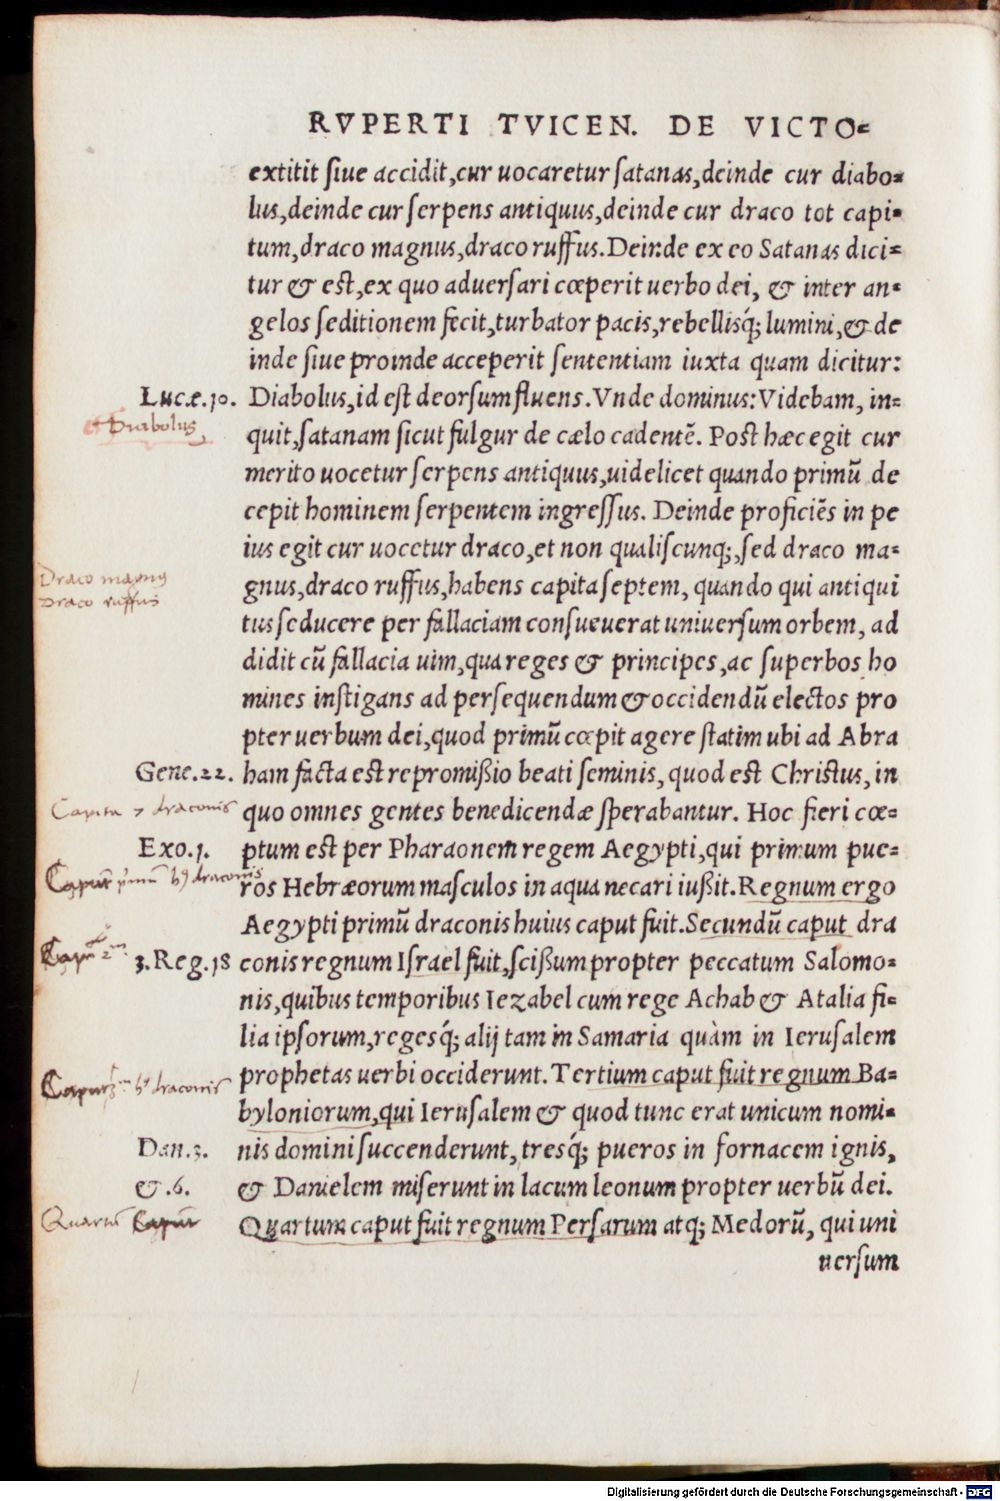 RVPERTI TVICEN. DE VICTO=
extitit ſiue accidit,cur uocaretur ſatanas,deinde cur diabo=
lus,deinde cur ſerpens antiquus,deinde cur draco tot capi=
tum,draco magnus,draco ruffus.Deinde ex eo Satanas dici=
tur & est,ex quo aduerſari cœperit uerbo dei, & inter an=
gelos ſeditionem fecit,turbator pacis,rebellisq́; lumini,& de
inde ſiue proinde acceperit ſententiam iuxta quam dicitur:
Lucæ.10. Diabolus,id est deorsum fluens.Vnde dominus:Videbam, in=
Diabolus
quit,ſatanam ſicut fulgur de cælo cadentē. Post hæc egit cur
merito uocetur ſerpens antiquus,uidelicet quando primū de
cepit hominem ſerpentem ingreſſus. Deinde proficiēs in pe
ius egit cur uocetur draco,et non qualiſcunq;,ſed draco ma=
Draco magnus
gnus,draco ruffus,habens capita ſeptem, quando qui antiqui
Draco ruffus
tus ſeducere per fallaciam conſueuerat uniuerſum orbem, ad
didit cū fallacia uim,qua reges & principes,ac ſuperbos ho
mines instigans ad perſequendum & occidendū electos pro
pter uerbum dei,quod primū cœpit agere ſtatim ubi ad Abra
Gene.22. ham facta est repromiſſio beati ſeminis, quod est Christus, in
Capita 7 draconis
quo omnes gentes benedicendæ ſperabantur. Hoc fieri cœ=
Exo.1. ptum est per Pharaonem regem Aegypti,qui primum pue=
Caput primū draconis
ros Hebræorum masculos in aqua necari iuſſit.Regnum ergo
Aegypti primū draconis huius caput fuit.Secundū caput dra
Caput 2m
3.Reg.18 conis regnum Iſrael fuit,ſciſſum propter peccatum Salomo=
nis,quibus temporibus Iezabel cum rege Achab & Atalia fi=
lia ipſorum,regesq́; alij tam in Samaria quàm in Ieruſalem
Caput draconis
prophetas uerbi occiderunt.Tertium caput fuit regnum Ba=
byloniorum,qui Ieruſalem & quod tunc erat unicum nomi=
Dan.3. nis domini ſuccenderunt, tresq́; pueros in fornacem ignis,
&.6. & Danielem miſerunt in lacum leonum propter uerbū dei.
Quartū Caput
Quartum caput fuit regnum Perſarum atq; Medorū, qui uni
uerſum
Digitalisierung gefördert durch die Deutsche Forschungsgemeinschaft - DFG